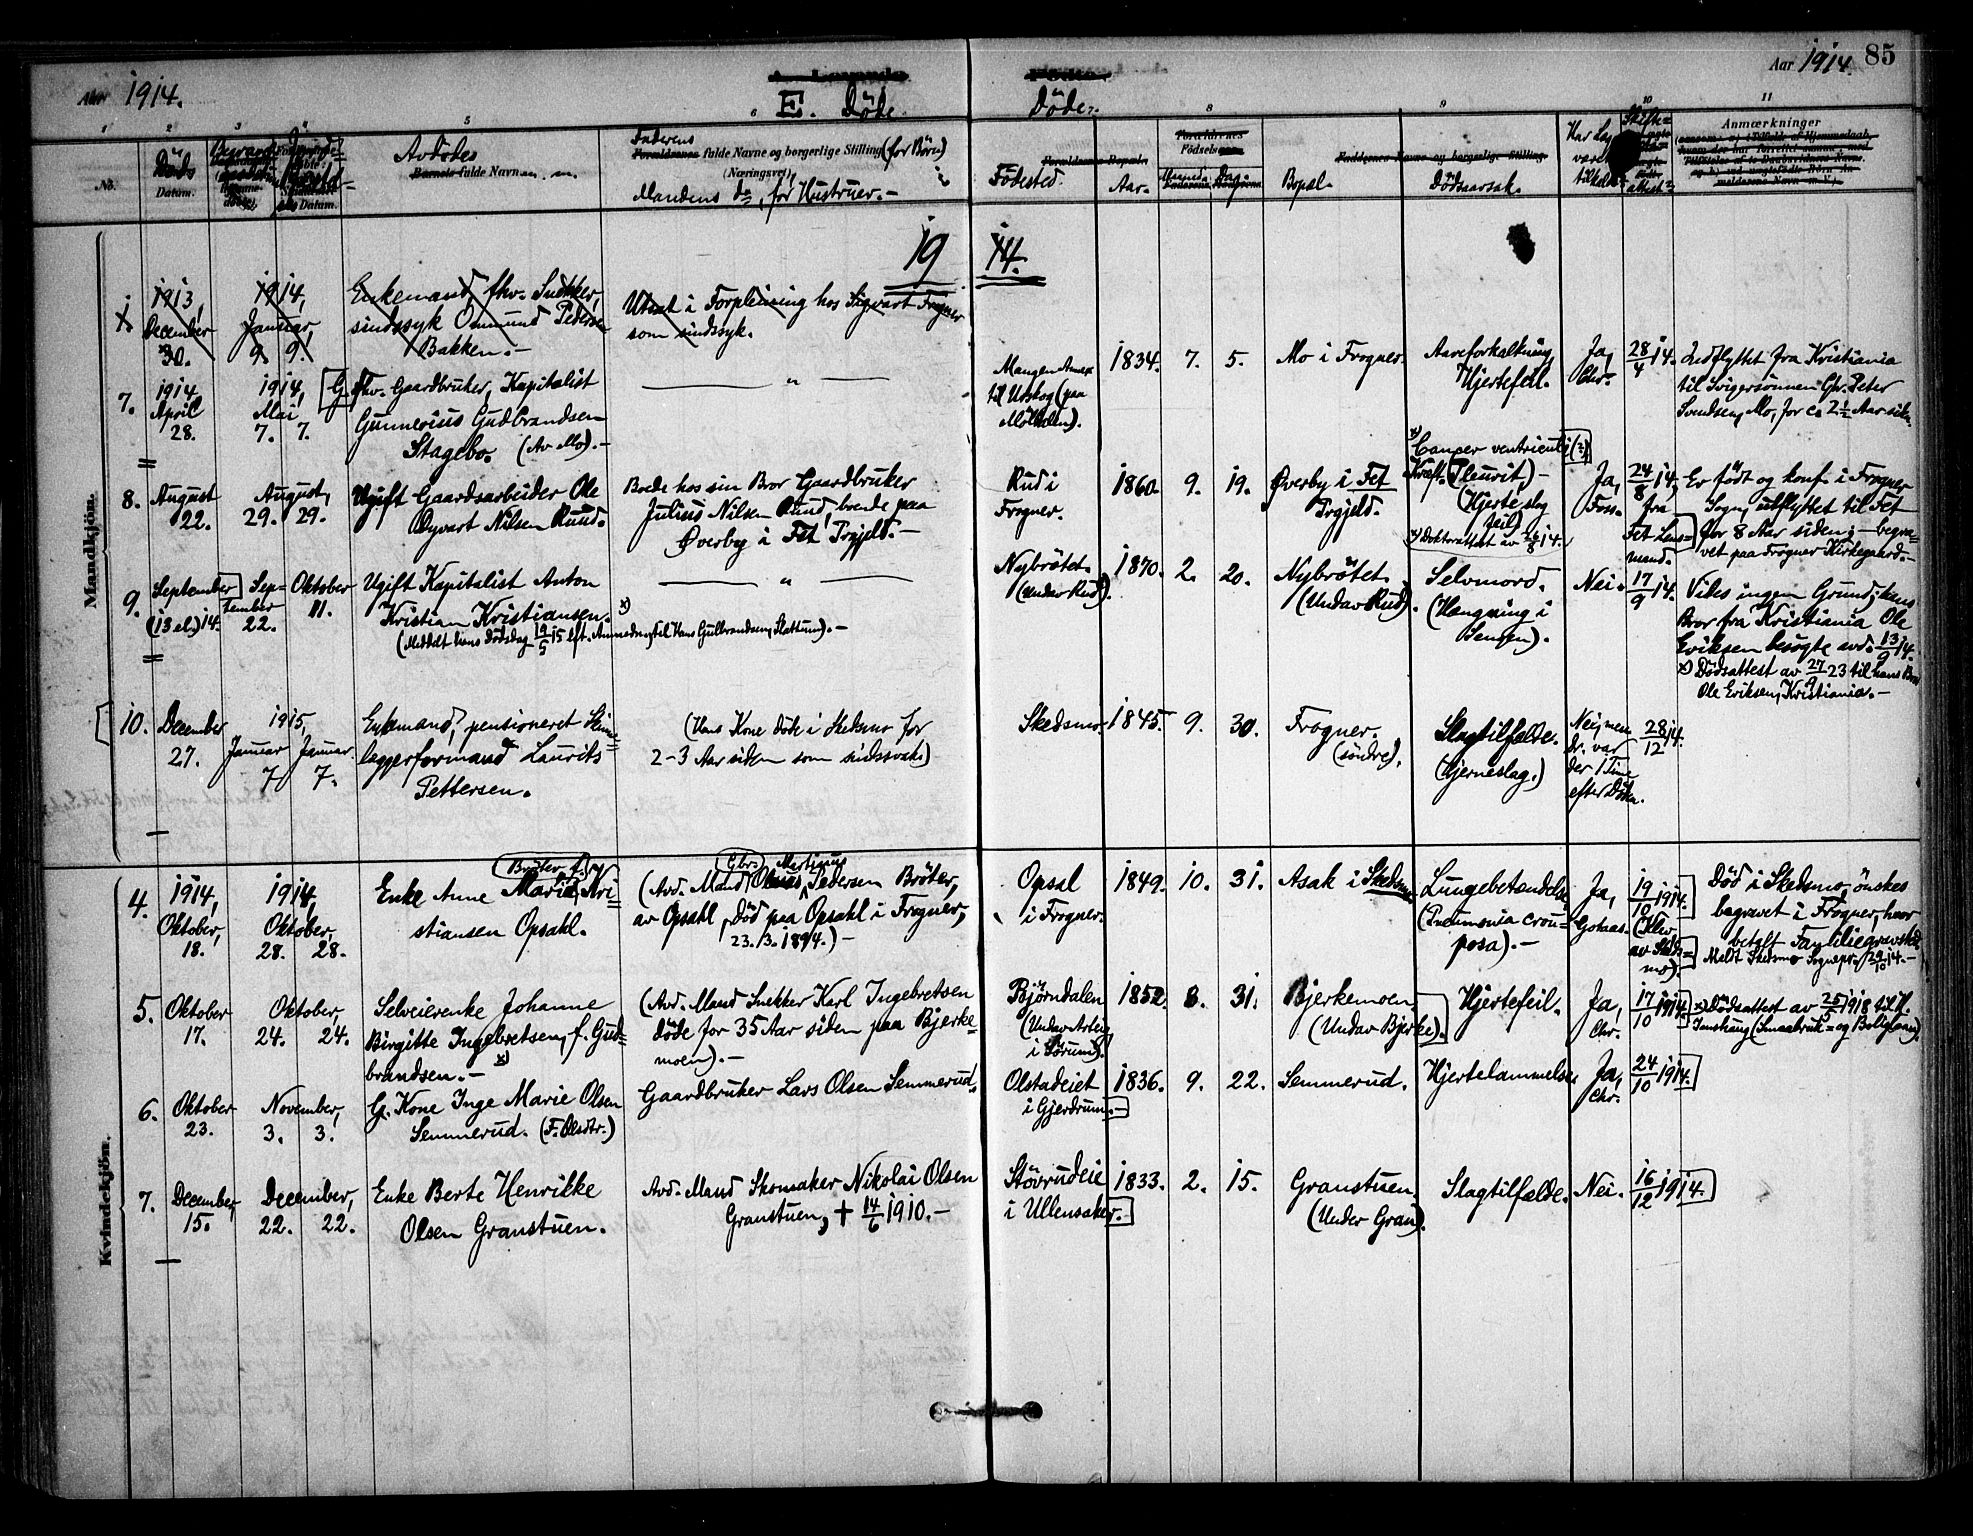 Aar 1914.
E. Døde.
Døde.
Aar 1914.
85
1
2
3
4
5
6
8
9
10
11
No.
Døds
Datum.
Avdødes
fulde Navn
Faderens
fulde Navne og borgerlige Stilling (for Børn)
(Næringsvei)
Mandens do, for Hustruer.-
Fødested.
Aar.
Fødsels
Dag.
Bopæl.
Dødsaarsak.
Anmærkninger
Mandkjön.
19 14.
1913,
December
30.
1914,
Januar,
9. 9.
Enkemand, fhv. Snekker,
sindssyk Osmund Pedersen
Bakken.-
Utsat i Forpleining hos Sigvart Frogner
som sindssyk.
7.
1914
April
28.
1914,
Mai
7. 7.
G. Fhv. Gaardbruker, Kapitalist
Gunnerius Gudbrandsen
Stagebo. (Av Mo).-
— " —
Mangen Annex
til Urskog (paa
1834. 7. 5.
Mo i Frogner.
Aareforkalkning,
Hjertefeil.
Ja,
Chr.
28/4 14.
Indflyttet fra Kristiania
til Svigersønnen Gbr. Peter
Svendsen, Mo, for ca 2½ Aar siden.
8.
August
22.
August,
29. 29.
Ugift Gaardsarbeider Ole
Øyvart Nilsen Ruud.
Boede hos sin Bror Gaardbruker
Julius Nilsen Ruud, boende paa
Øverby i Fet Prgjeld.-
Rud i
Frogner.
1860. 9. 19.
Øverby i Fet
Prgjeld.
x) Cancer ventriculi (?)
Kræft. (Pleurit)-
(Hjerteslag
feil)
x) Doktorattest av 26/8 14.
Ja,
Foss.
24/8 14,
fra
Fet Lens=
mand.
Er født og konf. i Frogner
Sogn, utflyttet til Fet
for 8 Aar siden;- begra=
vet paa Frogner Kirkegaard.-
9.
September
(13 el.) 14.
Sep=
tember
22.
Oktober
11.
Ugift Kapitalist Anton
Kristian Kristiansen. x)
(Meddelt hans Dødsdag 19/5 15 eft. Anmodning til Hans Gulbrandsen, Slattum).-
— " —
Nybrøtet.
(Undav Rud).
1870. 2. 20.
Nybrøtet.
(Undav Rud).
Selvmord.
(Hængning i
Sengen).
Nei.
17/9 14.
Vides ingen Grund; hans
Bror fra Kristiania Ole
Eriksen besøgte avd. 13/9 14.
x) Dødsattest av 27/9 23 til hans Bror
Ole Eriksen, Kristiania.-
10.
December
27.
1915,
Januar Januar
7 7.
Enkemand, pensioneret Skinne=
læggerformand Laurits
Pettersen.
(Hans Kone døde i Skedsmo for
2-3 Aar siden som sindssvak)
Skedsmo.
1845. 9. 30.
Frogner.
(søndre).
Slagtilfælde.
(Hjerneslag.)
Nei, men
dr. var
der 1 Time
efter Døden.
28/12 14.
Kvindekjön.
4.
1914,
Oktober,
18.
1914,
Oktober,
28. 28.
Enke Anne Marie Kri=
stiansen Opsahl.
(Avd. Mand Gbr. Martinus Pedersen Brøter,
av Opsahl, død paa Opsahl i Frogner,
23./3. 1894.)-
Opsal
i Frogner.
1849. 10. 31.
Asak i Skedsmo
Lungebetændelse
(Pneumonia crou=
posa).-
Ja,
Gotaas.
19/10 1914.
(Klv.
av Skeds=
mo).
Død i Skedsmo, ønskes
begravet i Frogner, hvor
betalt Familiegravsted
Meldt Skedsmo Sognepr. 29/10 14.-
5.
Oktober
17.
Oktober,
24. 24.
Selveierenke Johanne
Birgitte Ingebretsen, f. Gud=
brandsen.- x)
(Avd. Mand Snekker Karl Ingebretsen
døde for 35 Aar siden paa Bjerke=
moen).-
Bjørndalen
(Undav Arteig
i Sørum).
1852 8. 31.
Bjerkemoen
(Undav Bjerke).
Hjertefeil.
Ja,
Chr.
17/10 1914.
x) Dødsattest av 25/5 1918 til
(Smaabruk= og Boliglaan).
6.
Oktober
23.
November,
3. 3.
G. Kone Inge Marie Olsen
Semmerud. (F. Olsdtr.)
Gaardbruker Lars Olsen Semmerud.
Olstadeiet
i Gjerdrum.-
1836. 9. 22.
Semmerud.
Hjertelammelse
Ja,
Chr.
24/10 1914.
7.
December,
15.
December,
22. 22.
Enke Berte Henrikke
Olsen Granstuen.
Avd. Mand Skomaker Nikolai Olsen
Granstuen, + 14/6 1910.-
Støvrudeie
i Ullensaker.-
1833. 2. 15.
Granstuen.
(Under Gran).
Slagtilfælde.
Nei.
16/12 1914.